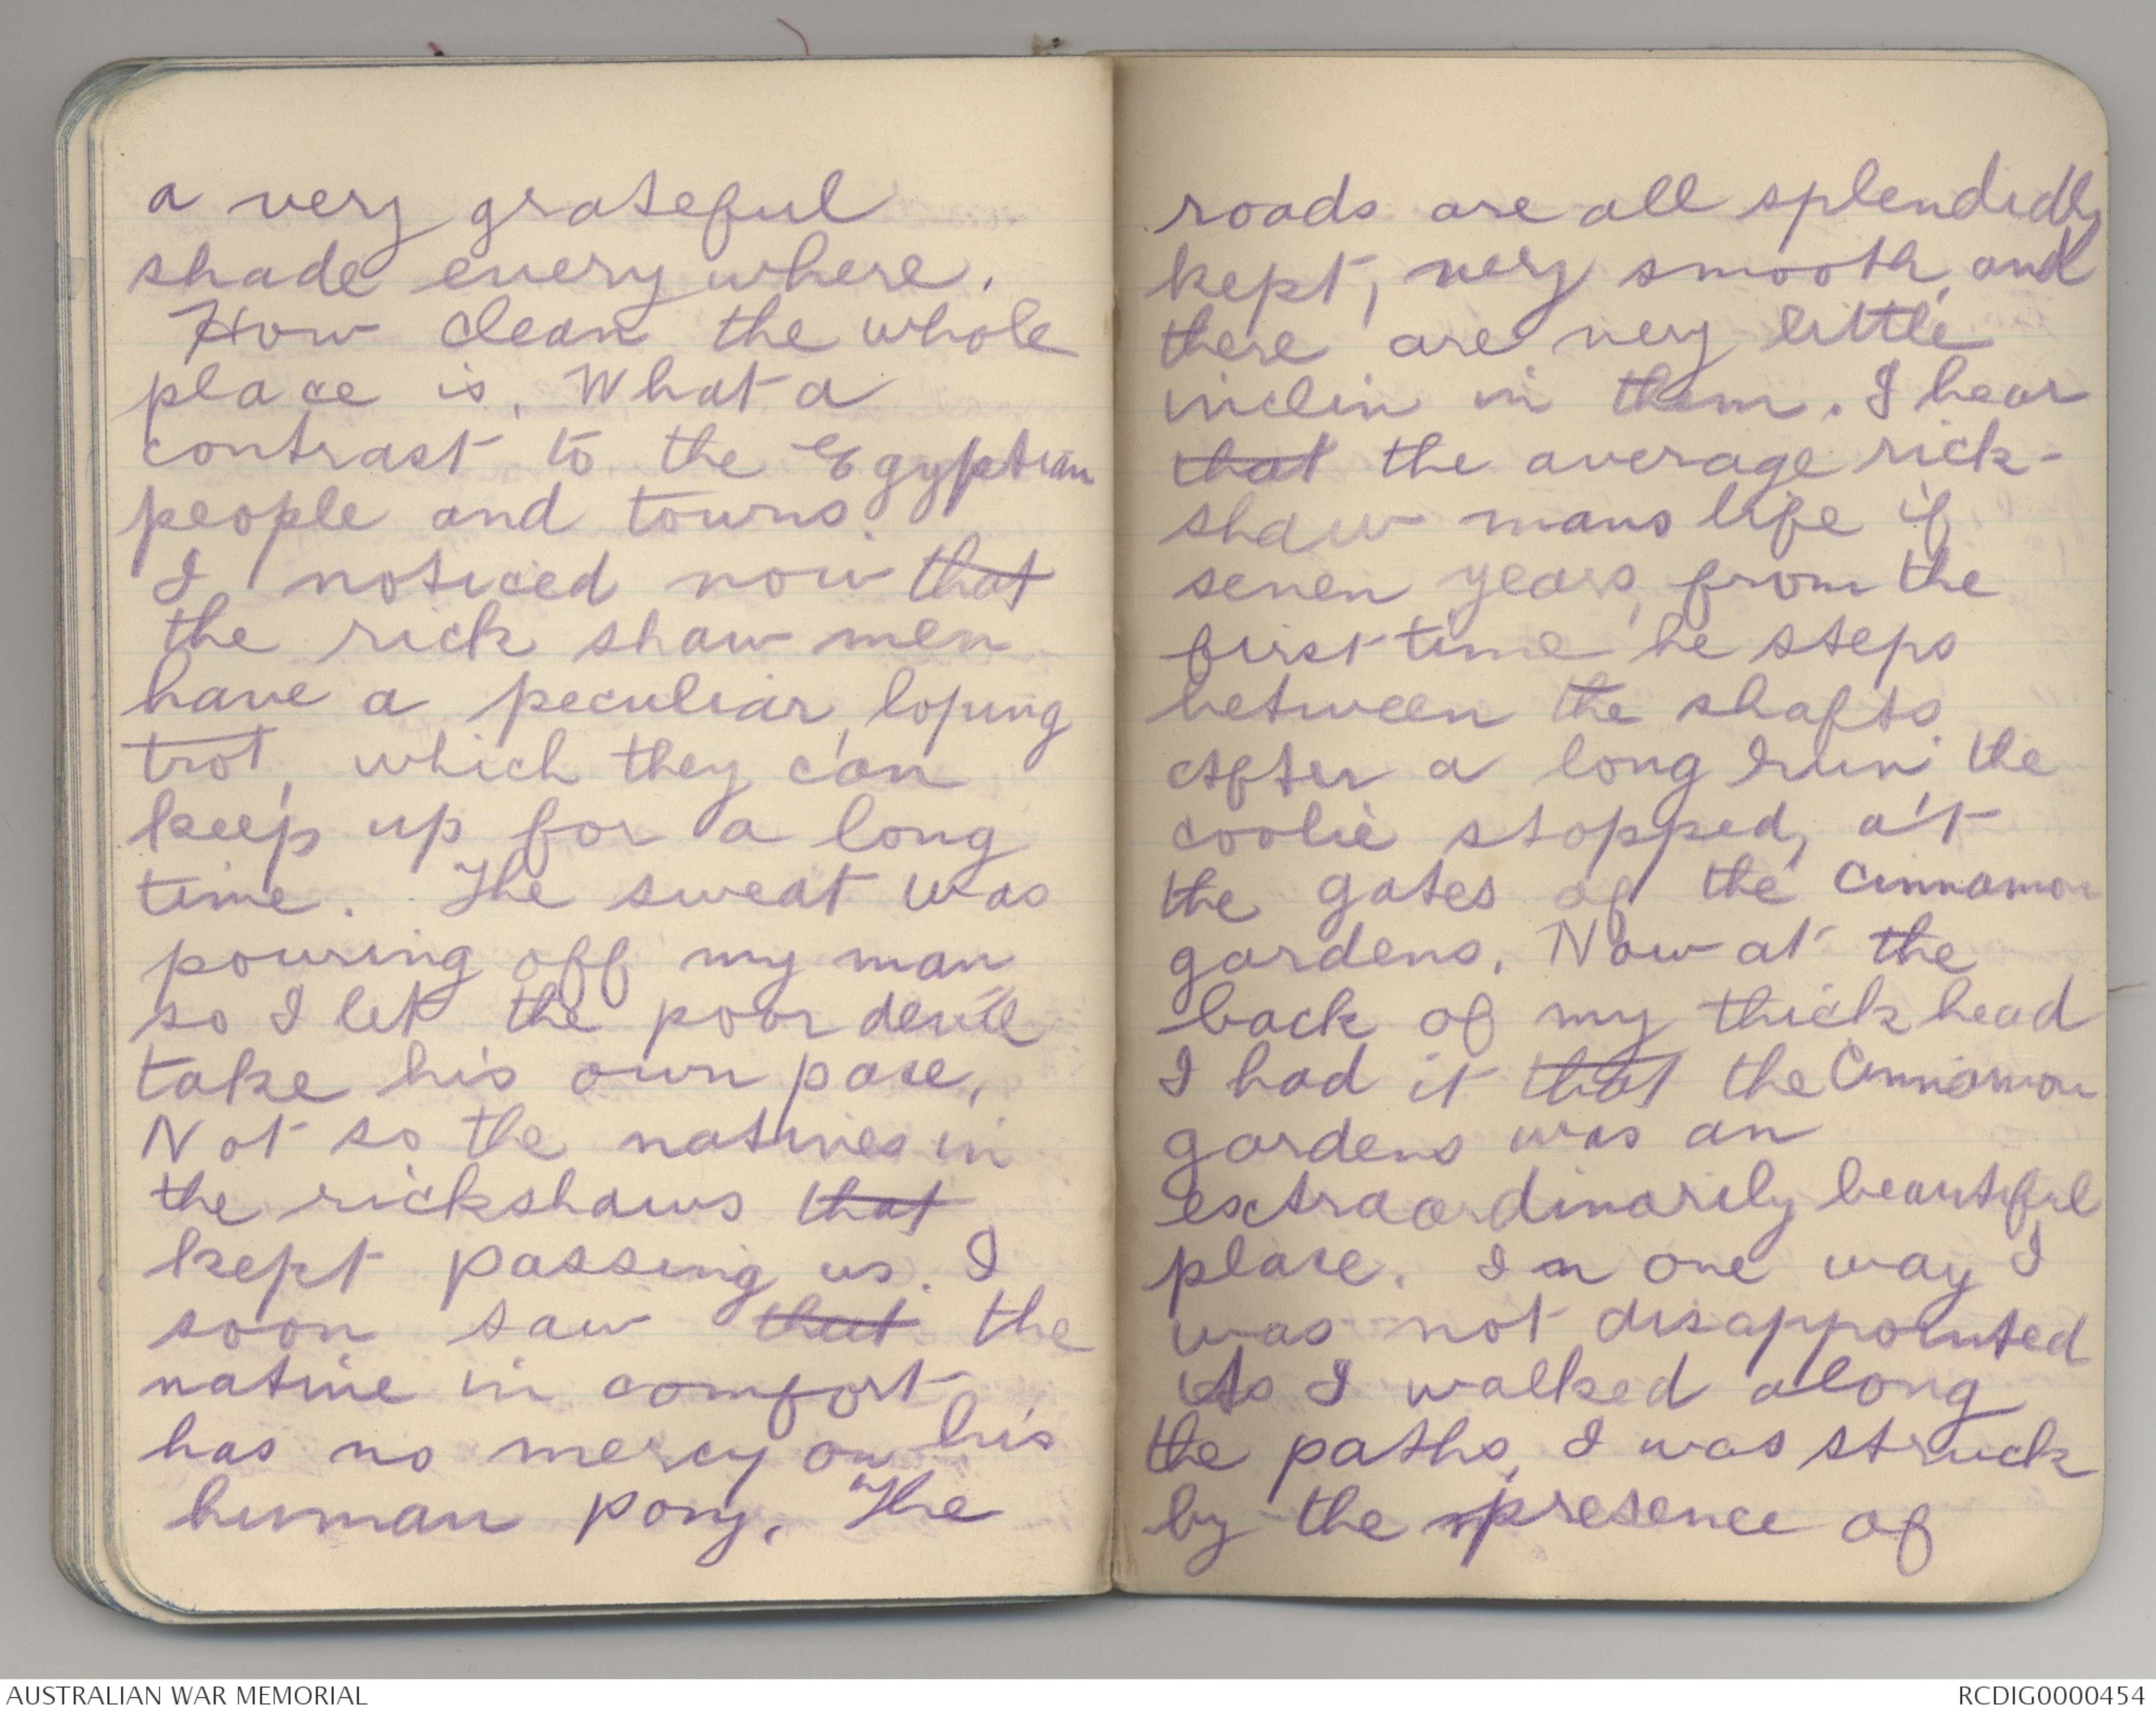 a very grateful
shade everywhere.
How clean the whole
place is. What a
contrast to the Egyptian
people and towns.
I noticed now that
the rick shaw men
have a peculiar, loping
trot, which they can
keep up for a long
time. The sweat was
pouring off my man
so I let the poor devil
take his own pace.
Not so the natives in
the rickshaws that
kept passing us. I
soon saw that the
native in comfort
has no mercy on his
human pony. The
roads are all splendidly
kept, very smooth, and
there are very little
inclin in them. I hear
that the average rick-
shaw mans life if
seven years, from the
first time he steps
between the shafts.
After a long run the
coolie stopped, at
the gates of the Cinnamon
gardens. Now at the
back of my thick head
I had it that the Cinnamon
gardens was an
extraordinarily beautiful
place. In one way I
was not disappointed
As I walked along
the paths, I was struck
by the presence of
AUSTRALIAN WAR MEMORIAL
RCDIG0000454